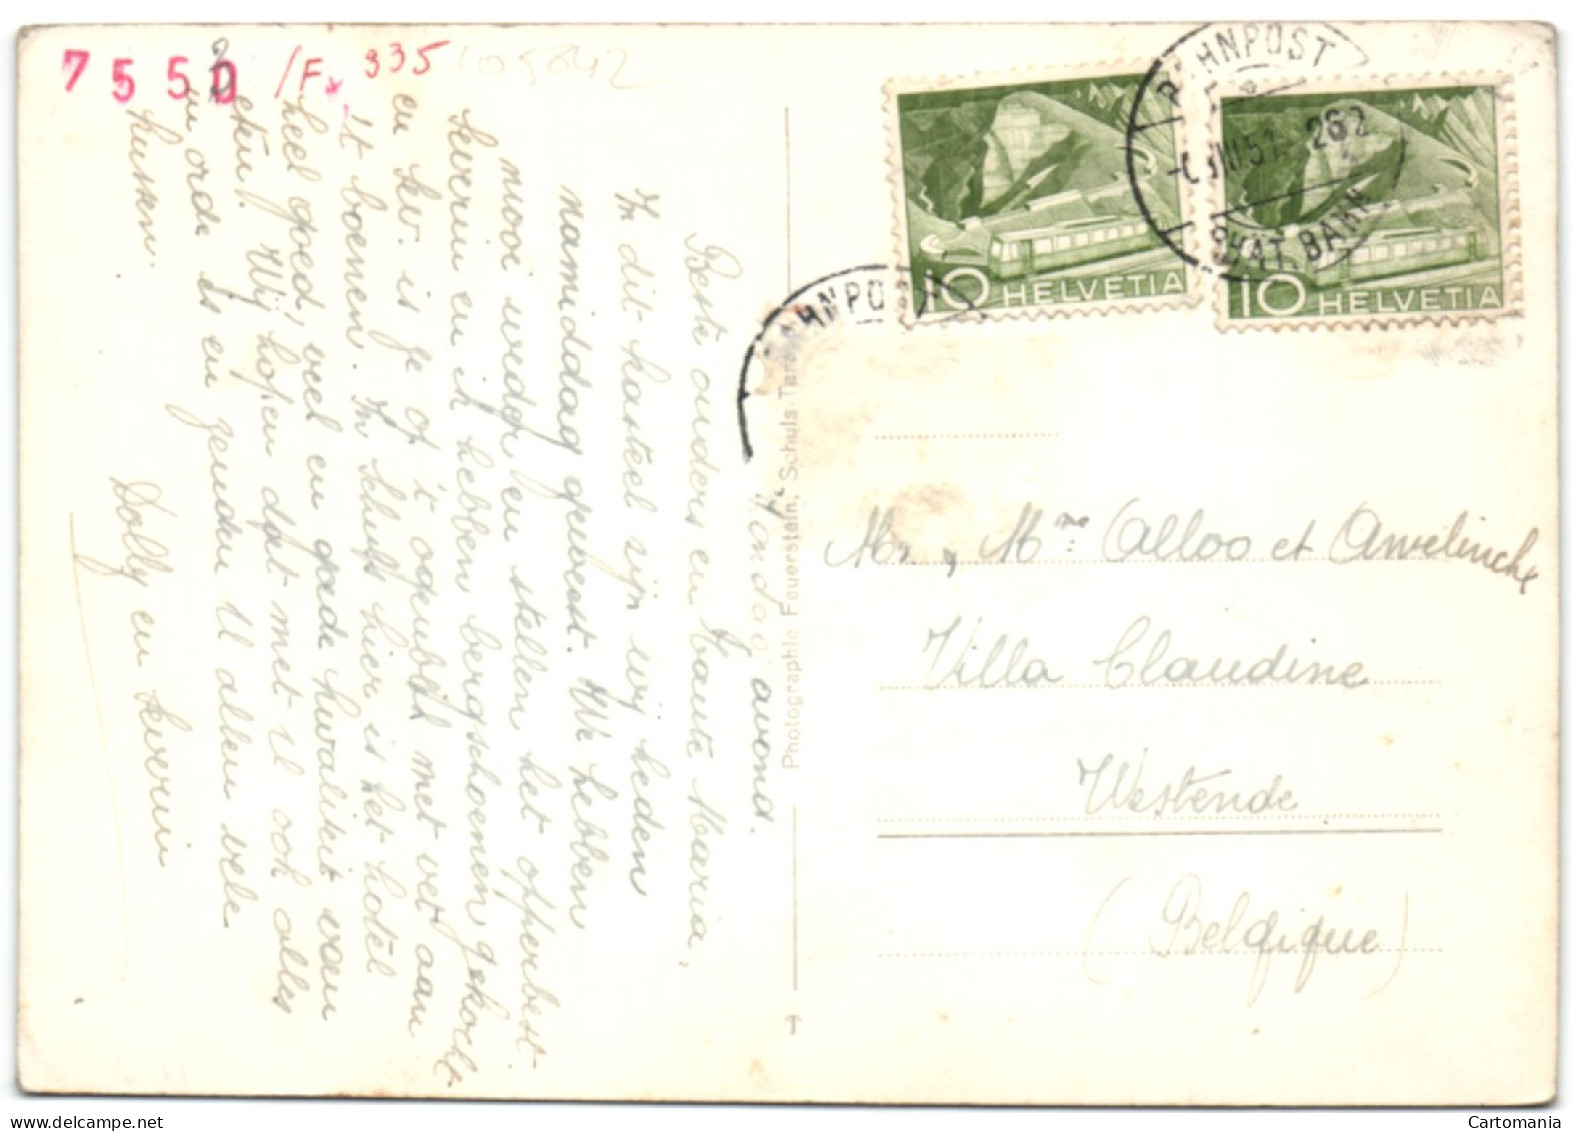 7550 /Fx 335 105842
Zondag avond.
Beste ouders en Tante Maria,
In dit kasteel zijn wij heden
namiddag geweest. We hebben
mooi weder en stellen het opperbest.
Severin en ik hebben bergschoenen gekocht
en hr. is ge of 't ogenblik met vet aan
't boenen. In Schuls hier is het hotel
heel goed, veel en goede kwaliteit van
eten. Wij hopen dat met U ook alles
in orde is en zenden U allen vele
kussen.
Dolly en Severin
Photographie Feuerstein, Schuls-Tar
BAHNPOST
BAHNPOST
III.51 262
RHAT. BAHN
10 HELVETIA
10 HELVETIA
Mr, Mme Calloo et Amelinckx
Villa Claudine
Westende
(Belgique)
Cartomania